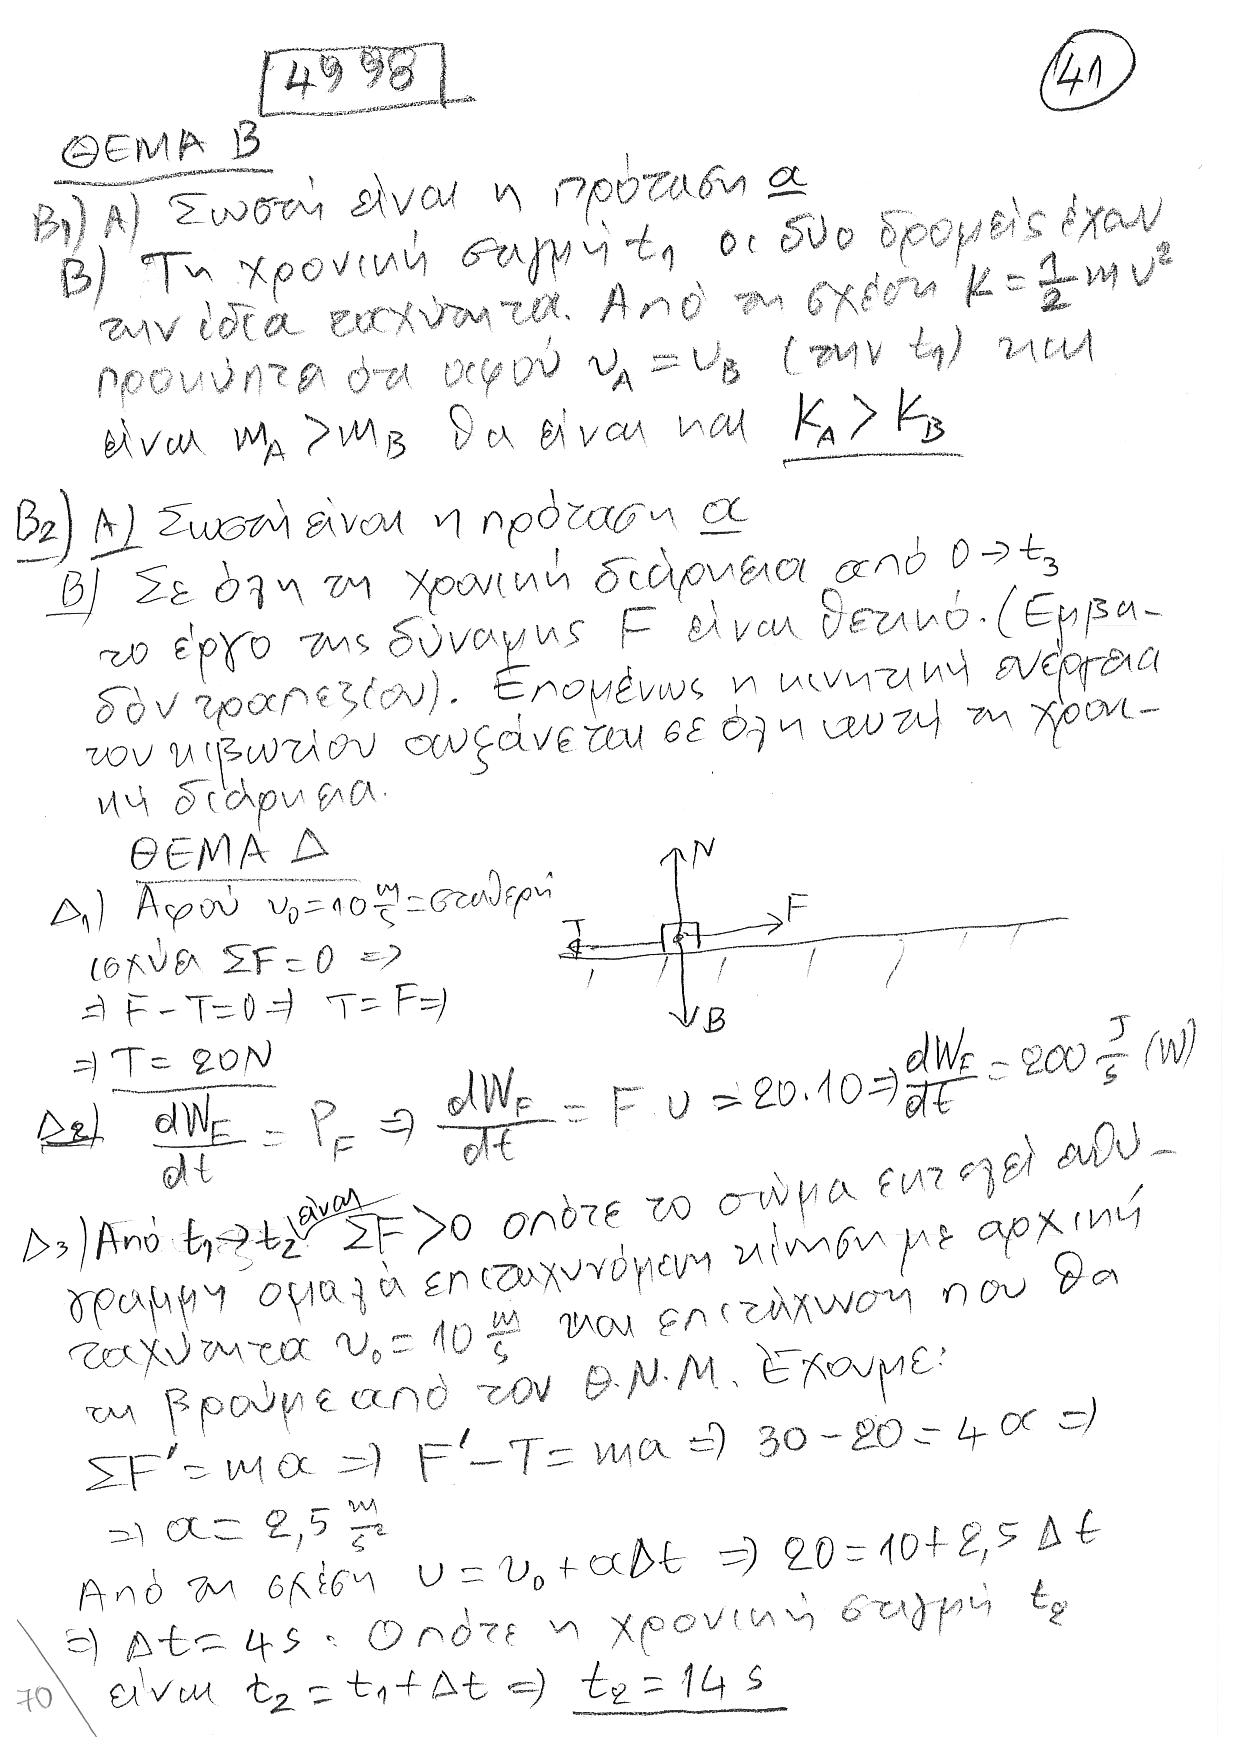 4998
41
ΘΕΜΑ Β
Β1) Α) Σωστή είναι η πρόταση α
Β) Τη χρονική στιγμή t1 οι δύο δρομείς έχουν
την ίδια ταχύτητα. Από τη σχέση K = 1/2 m υ²
προκύπτει ότι αφού υA = υB (την t1) και
είναι mA > mB θα είναι και KA > KB
Β2) Α) Σωστή είναι η πρόταση α
Β) Σε όλη τη χρονική διάρκεια από 0 → t3
το έργο της δύναμης F είναι θετικό. (Εμβα-
δόν τραπεζίου). Επομένως η κινητική ενέργεια
του κιβωτίου αυξάνεται σε όλη αυτή τη χρονι-
κή διάρκεια.
ΘΕΜΑ Δ
Δ1) Αφού υ0 = 10 m/s = σταθερή
ισχύει ΣF = 0 =>
=> F - T = 0 => T = F =>
=> T = 20N
N
F
T
B
Δ2) dWF/dt = PF => dWF/dt = F υ = 20·10 => dWF/dt = 200 J/s (W)
Δ3) Από t1 → t2 είναι ΣF > 0 οπότε το σώμα εκτελεί ευθύ-
γραμμη ομαλά επιταχυνόμενη κίνηση με αρχική
ταχύτητα υ0 = 10 m/s και επιτάχυνση που θα
τη βρούμε από τον Θ.Ν.Μ. Έχουμε:
ΣF' = mα => F' - T = mα => 30 - 20 = 4α =>
=> α = 2,5 m/s²
Από τη σχέση υ = υ0 + αΔt => 20 = 10 + 2,5 Δt
=> Δt = 4s. Οπότε η χρονική στιγμή t2
είναι t2 = t1 + Δt => t2 = 14 s
70